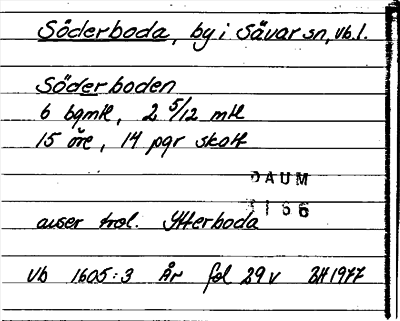 Söderboda, by i Sävar sn, Vb. l.
Söderboden
6 bgmtl, 2 5/12 mtl
15 öre, 14 pgr skatt
DAUM
1166
avser trol. Ytterboda
Vb 1605:3 År fol 29v BH 1977